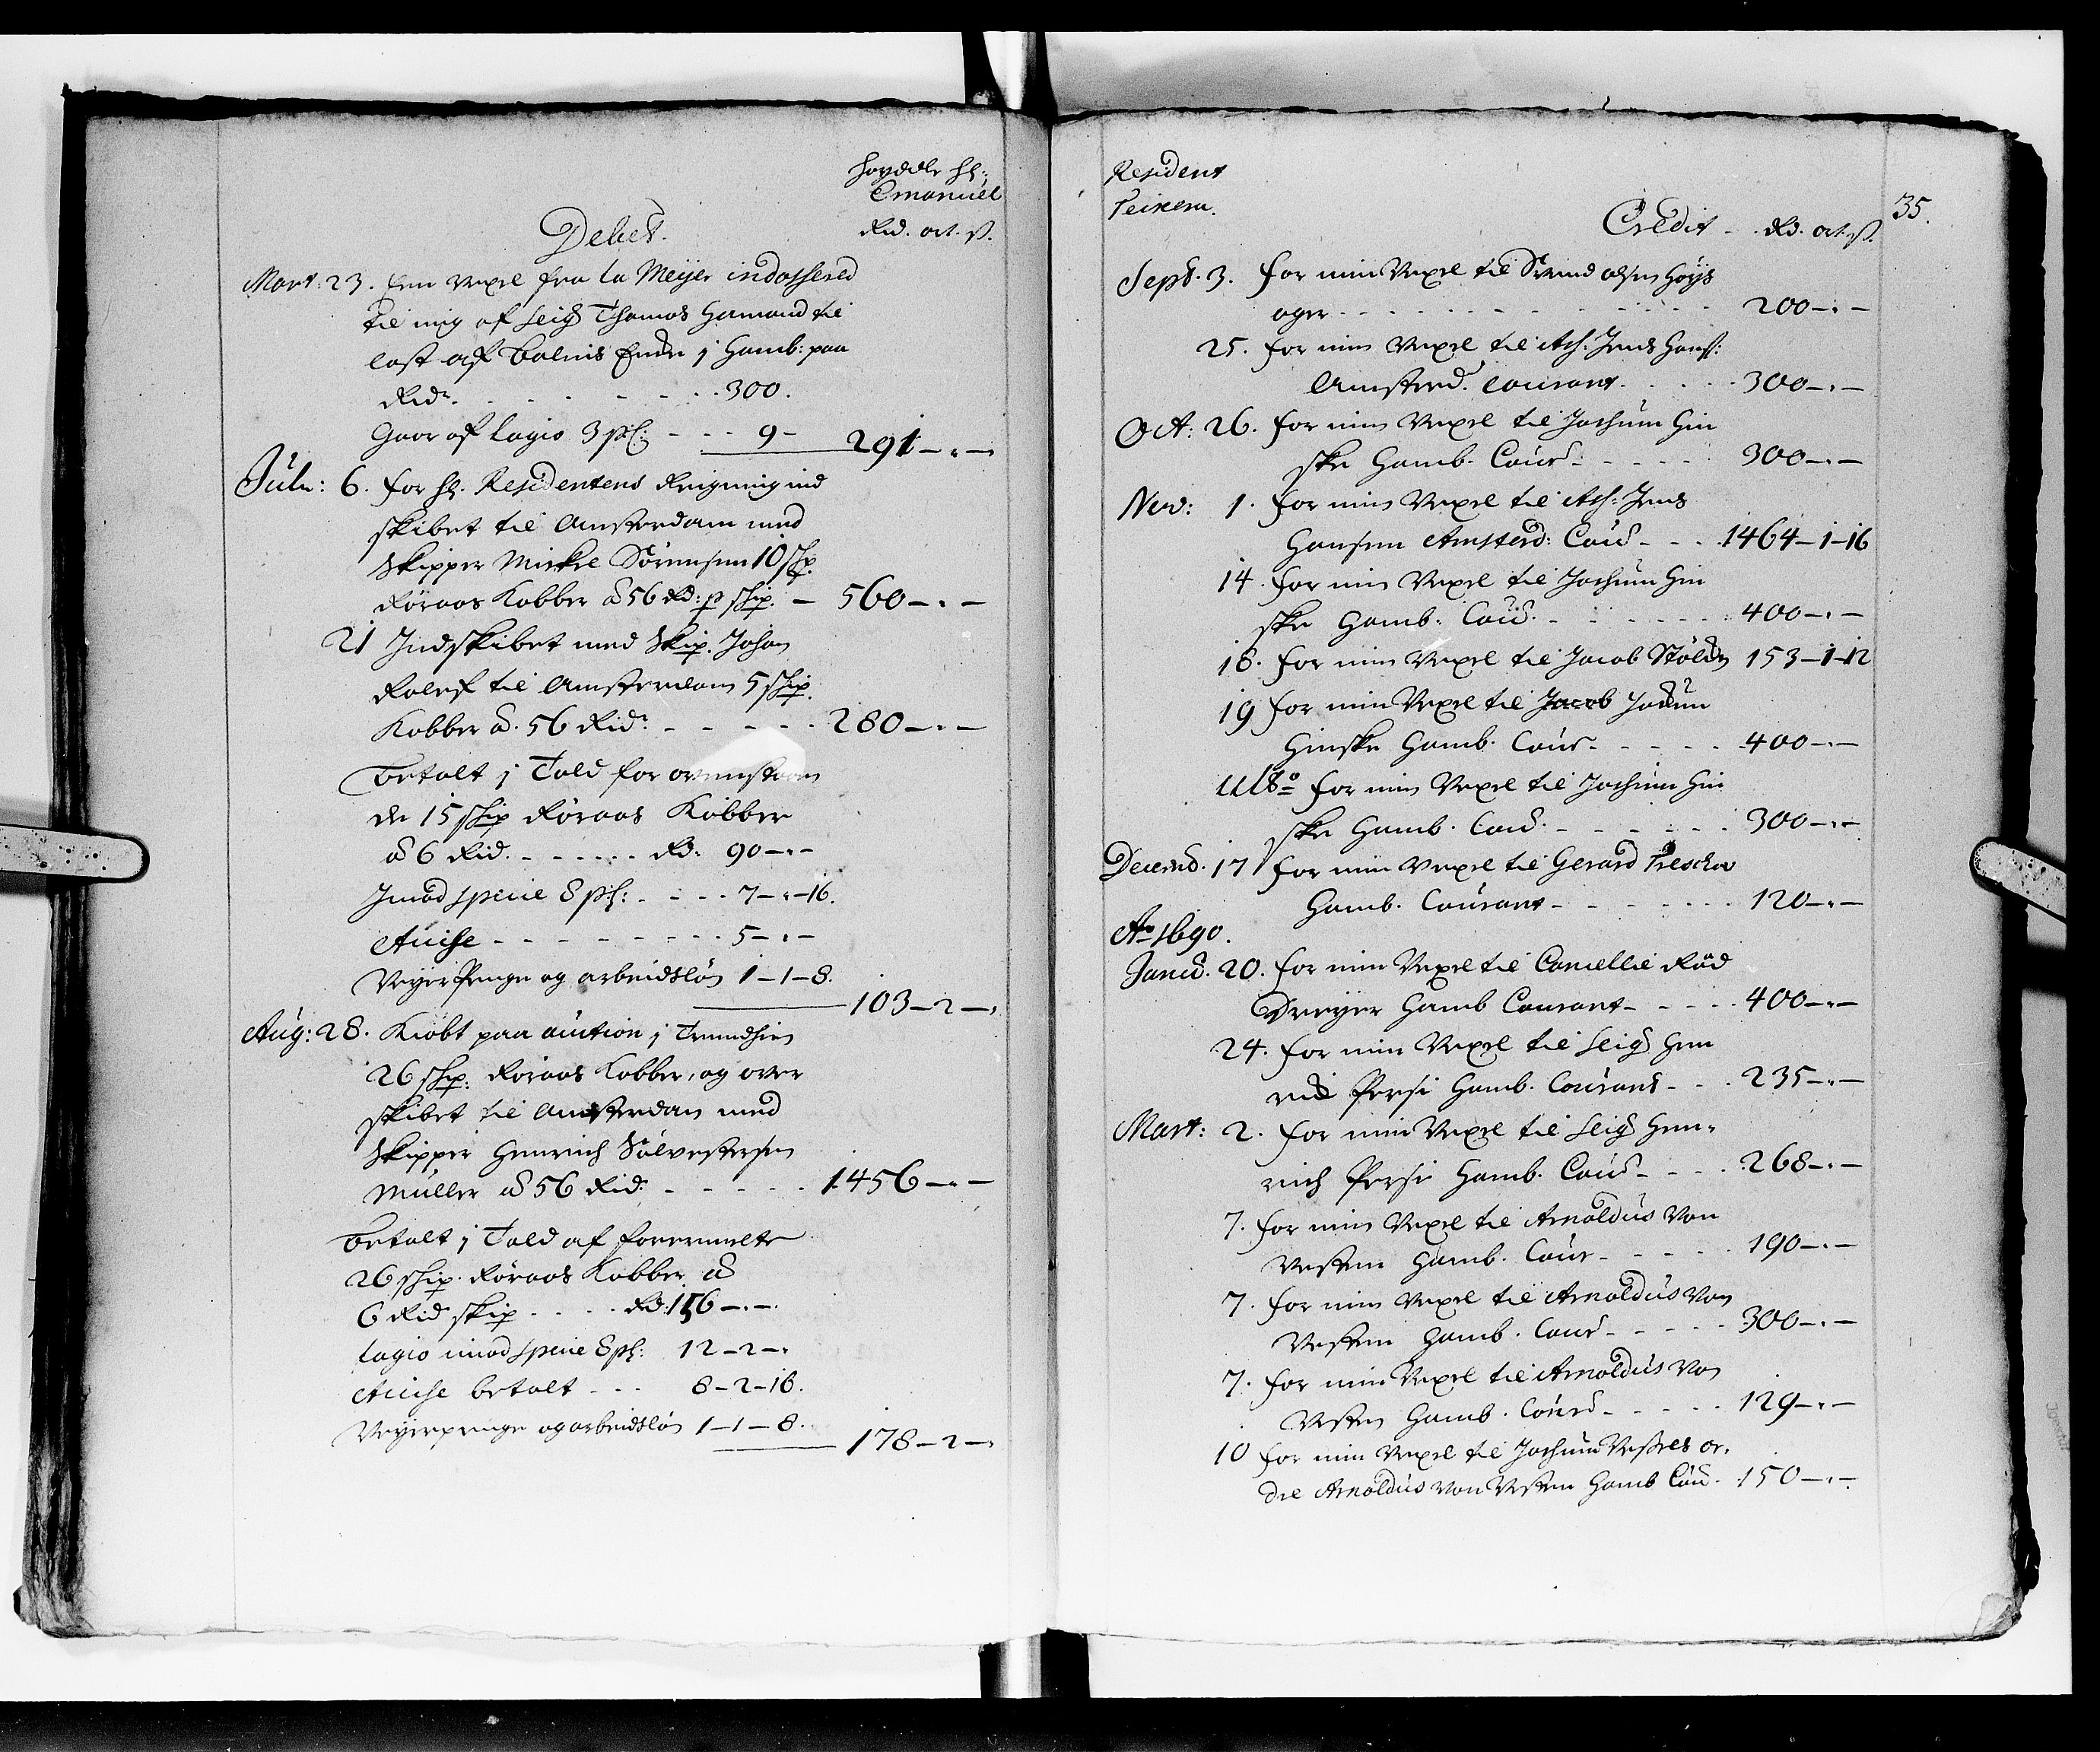 Høyædle Hl:
Emanuel
Debet.
Rid. ort. ß.
Mart: 23. Een Vexel fra la Meyer indossered
til mig af Seig Thomas Hamond til
last af Balnis Ende i Hamb: paa
Rid. 300.
Gaar af lagio 3 pC: 9 - 291 - " -
Jul: 6. for Hl. Residentens Reigning ind
skibet til Amsterdam med
Skipper Mickel Sørensen 10 skp.
Røraas Kobber à 56 Rd: p skip. - 560 - " -
21 Indskibet med Skip. Johan
Rolef til Amsterdam 5 skip.
Kobber à 56 Rid. 280 - " -
Betalt i Told for ovenstaaen
de 15 skip Røraas Kobber
à 6 Rid. Rd: 90 - " -
Imod specie 8 pC: 7 - " - 16.
Accise 5 - " -
Veyer Penge og arbeidsløn 1 - 1 - 8.
103 - 2 - "
Aug: 28. Kiøbt paa auction i Trundhiem
26 skp. Røraas Kobber, og over
skibet til Amsterdam med
Skipper Henrich Sølvestersen
Müller à 56 Rid. 1456 - " -
Betalt i Told af forermelte
26 skip. Røraas Kobber à
6 Rid skip Rd: 156 - " -
lagio imod specie 8 pC: 12 - 2 - "
Accise betalt 8 - 2 - 16.
Veyerpenge og arbeidsløn 1 - 1 - 8.
178 - 2 - "
Resident
Teixera.
35.
Credit - Rd. ort. ß.
Sept. 3. for min Vexel til Svend olsen Høys
ager 200 - " -
25. for min Vexel til Ass. Jens Hans:
Amsterd. Courant. 300 - " -
Oct: 26. for min Vexel til Jochum Hin
ske Hamb. Cour. 300 - " -
Nov: 1. for min Vexel til Ass: Jens
Hansen Amsterd: Cour - 1464 - 1 - 16
14. for min Vexel til Jochum Hin
ske Hamb. Cour. 400 - " -
18. for min Vexel til Jacob Stölen 153 - 1 - 12
19 for min Vexel til Jacob Jochum
Hinske Hamb. Cour. 400 - " -
Ult° for min Vexel til Jochum Hin
ske Hamb. Cour. 300 - " -
Decemb. 17 for min Vexel til Gerard Treschow
Hamb. Courant 120 - " -
A° 1690.
Janu. 20. for min Vexel til Cancellie Raad
Dreyer Hamb Courant 400 - " -
24. for min Vexel til Seig Hen
rich Persi Hamb. Courant 235 - " -
Mart: 2. for min Vexel til Seig Hen-
rich Persi Hamb. Cour 268 - " -
7. for min Vexel til Arnoldus Von
Vesten Hamb. Cour 190 - " -
7. for min Vexel til Arnoldus Von
Vesten Hamb. Cour 300 - " -
7. for min Vexel til Arnoldus Von
Vesten Hamb. Cour 129 - " -
10 for min Vexel til Jochum Vessels or-
dre Arnoldus von Vesten Hamb Cour. 150 - " -